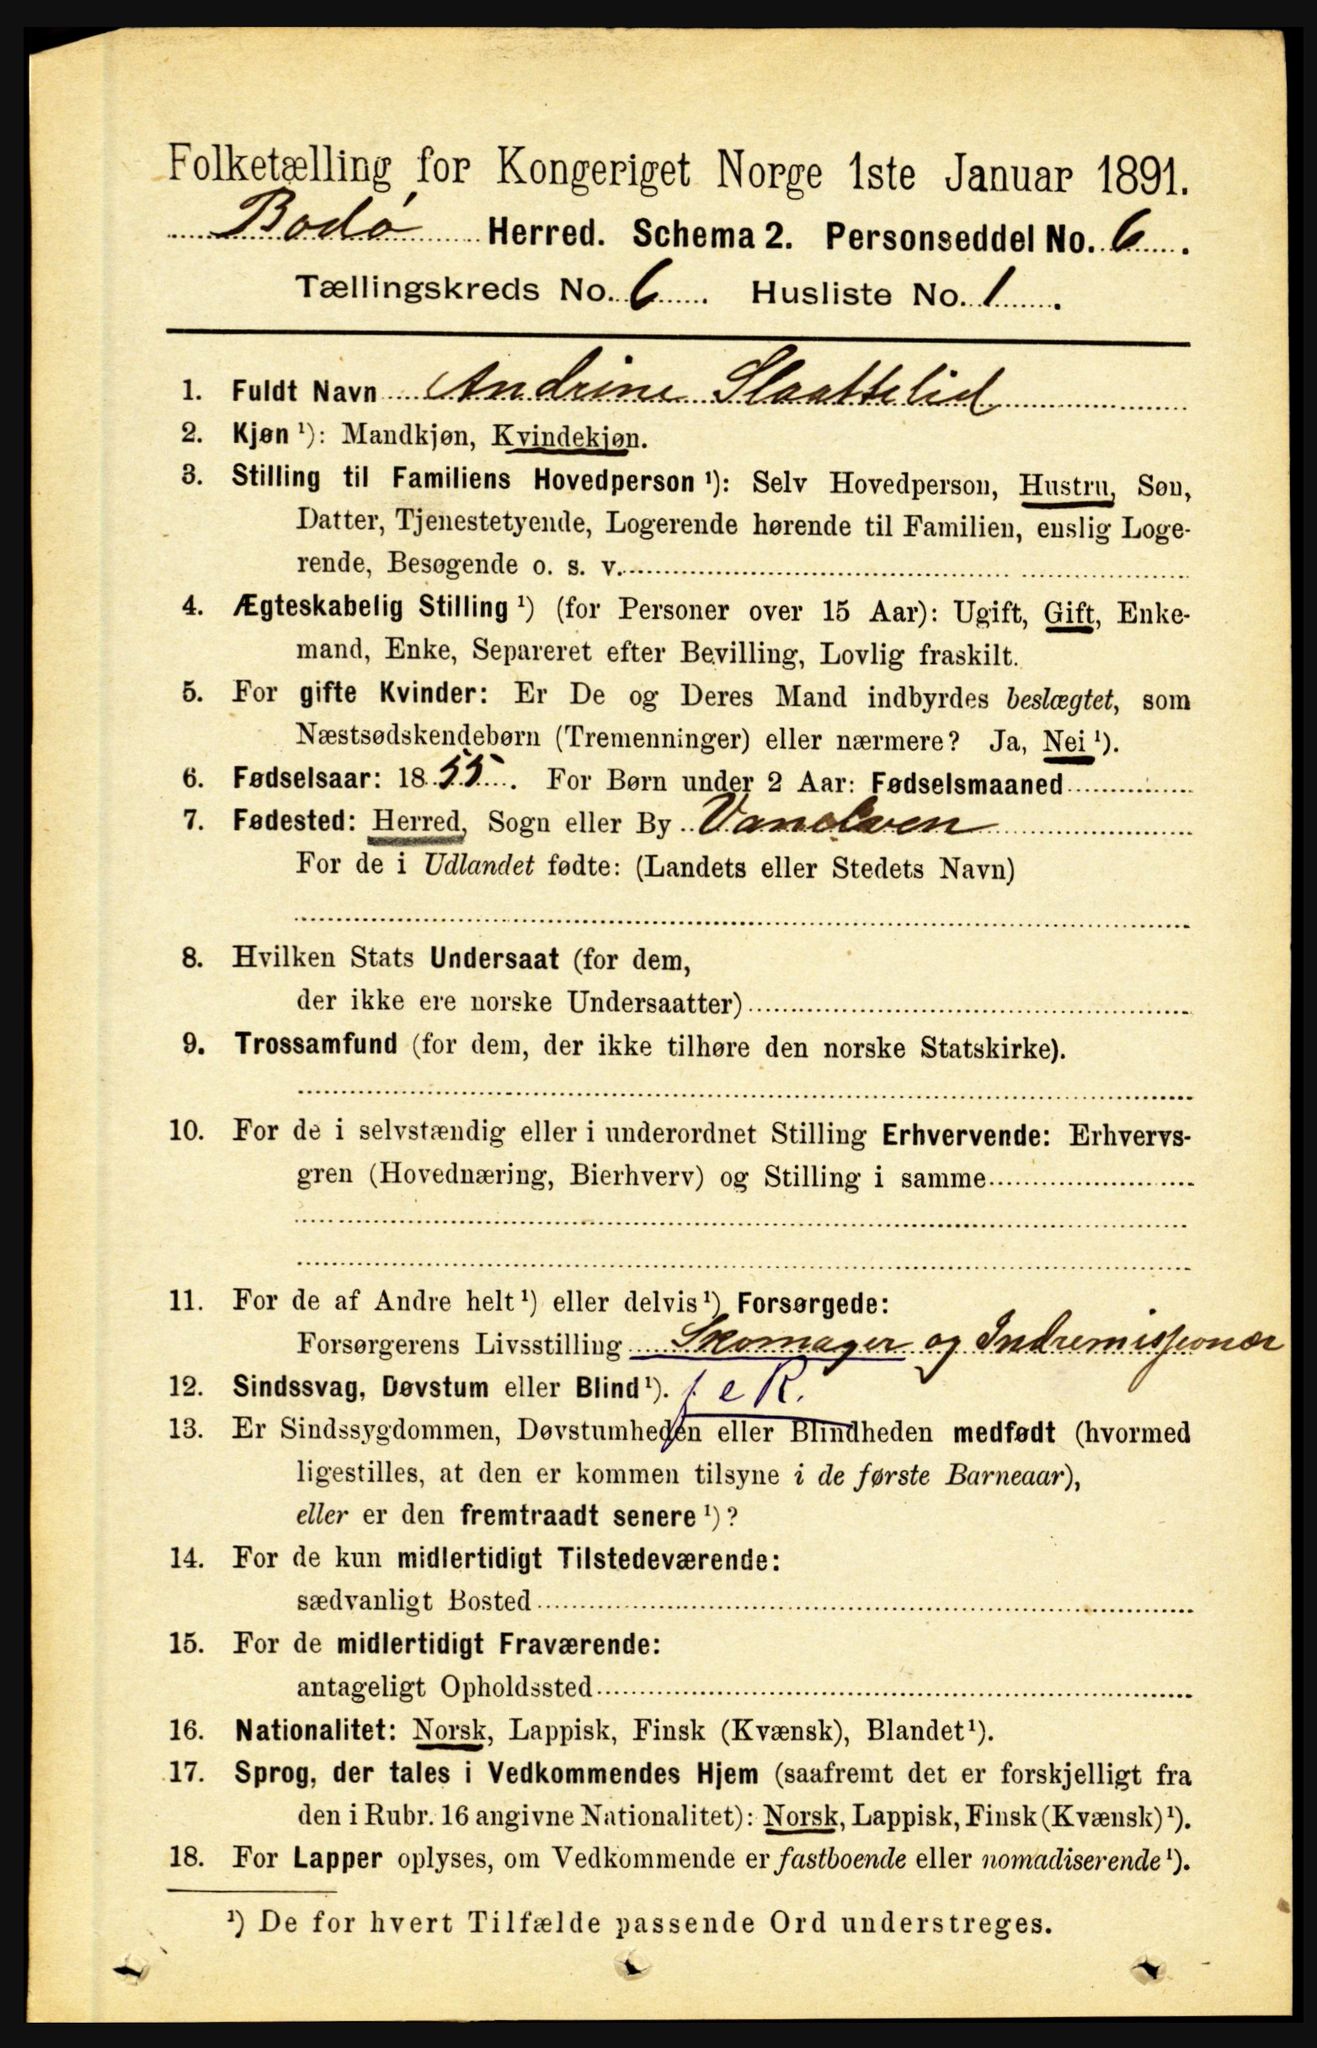 Folketælling for Kongeriget Norge 1ste Januar 1891.
Bodø Herred. Schema 2. Personseddel No. 6.
Tællingskreds No. 6. Husliste No. 1.
1. Fuldt Navn Andrine Slaattelid
2. Kjøn ¹): Mandkjøn, Kvindekjøn.
3. Stilling til Familiens Hovedperson ¹): Selv Hovedperson, Hustru, Søn,
Datter, Tjenestetyende, Logerende hørende til Familien, enslig Loge-
rende, Besøgende o. s. v.
4. Ægteskabelig Stilling ¹) (for Personer over 15 Aar): Ugift, Gift, Enke-
mand, Enke, Separeret efter Bevilling, Lovlig fraskilt.
5. For gifte Kvinder: Er De og Deres Mand indbyrdes beslægtet, som
Næstsødskendebørn (Tremenninger) eller nærmere? Ja, Nei ¹).
6. Fødselsaar: 1855. For Børn under 2 Aar: Fødselsmaaned
7. Fødested: Herred, Sogn eller By Vanelven
For de i Udlandet fødte: (Landets eller Stedets Navn)
8. Hvilken Stats Undersaat (for dem,
der ikke ere norske Undersaatter)
9. Trossamfund (for dem, der ikke tilhøre den norske Statskirke).
10. For de i selvstændig eller i underordnet Stilling Erhvervende: Erhvervs-
gren (Hovednæring, Bierhverv) og Stilling i samme
11. For de af Andre helt ¹) eller delvis ¹) Forsørgede:
Forsørgerens Livsstilling Skomager og Indremissionær
12. Sindssvag, Døvstum eller Blind ¹). f e R.
13. Er Sindssygdommen, Døvstumheden eller Blindheden medfødt (hvormed
ligestilles, at den er kommen tilsyne i de første Barneaar),
eller er den fremtraadt senere ¹)?
14. For de kun midlertidigt Tilstedeværende:
sædvanligt Bosted
15. For de midlertidigt Fraværende:
antageligt Opholdssted
16. Nationalitet: Norsk, Lappisk, Finsk (Kvænsk), Blandet ¹).
17. Sprog, der tales i Vedkommendes Hjem (saafremt det er forskjelligt fra
den i Rubr. 16 angivne Nationalitet): Norsk, Lappisk, Finsk (Kvænsk) ¹).
18. For Lapper oplyses, om Vedkommende er fastboende eller nomadiserende ¹).
¹) De for hvert Tilfælde passende Ord understreges.